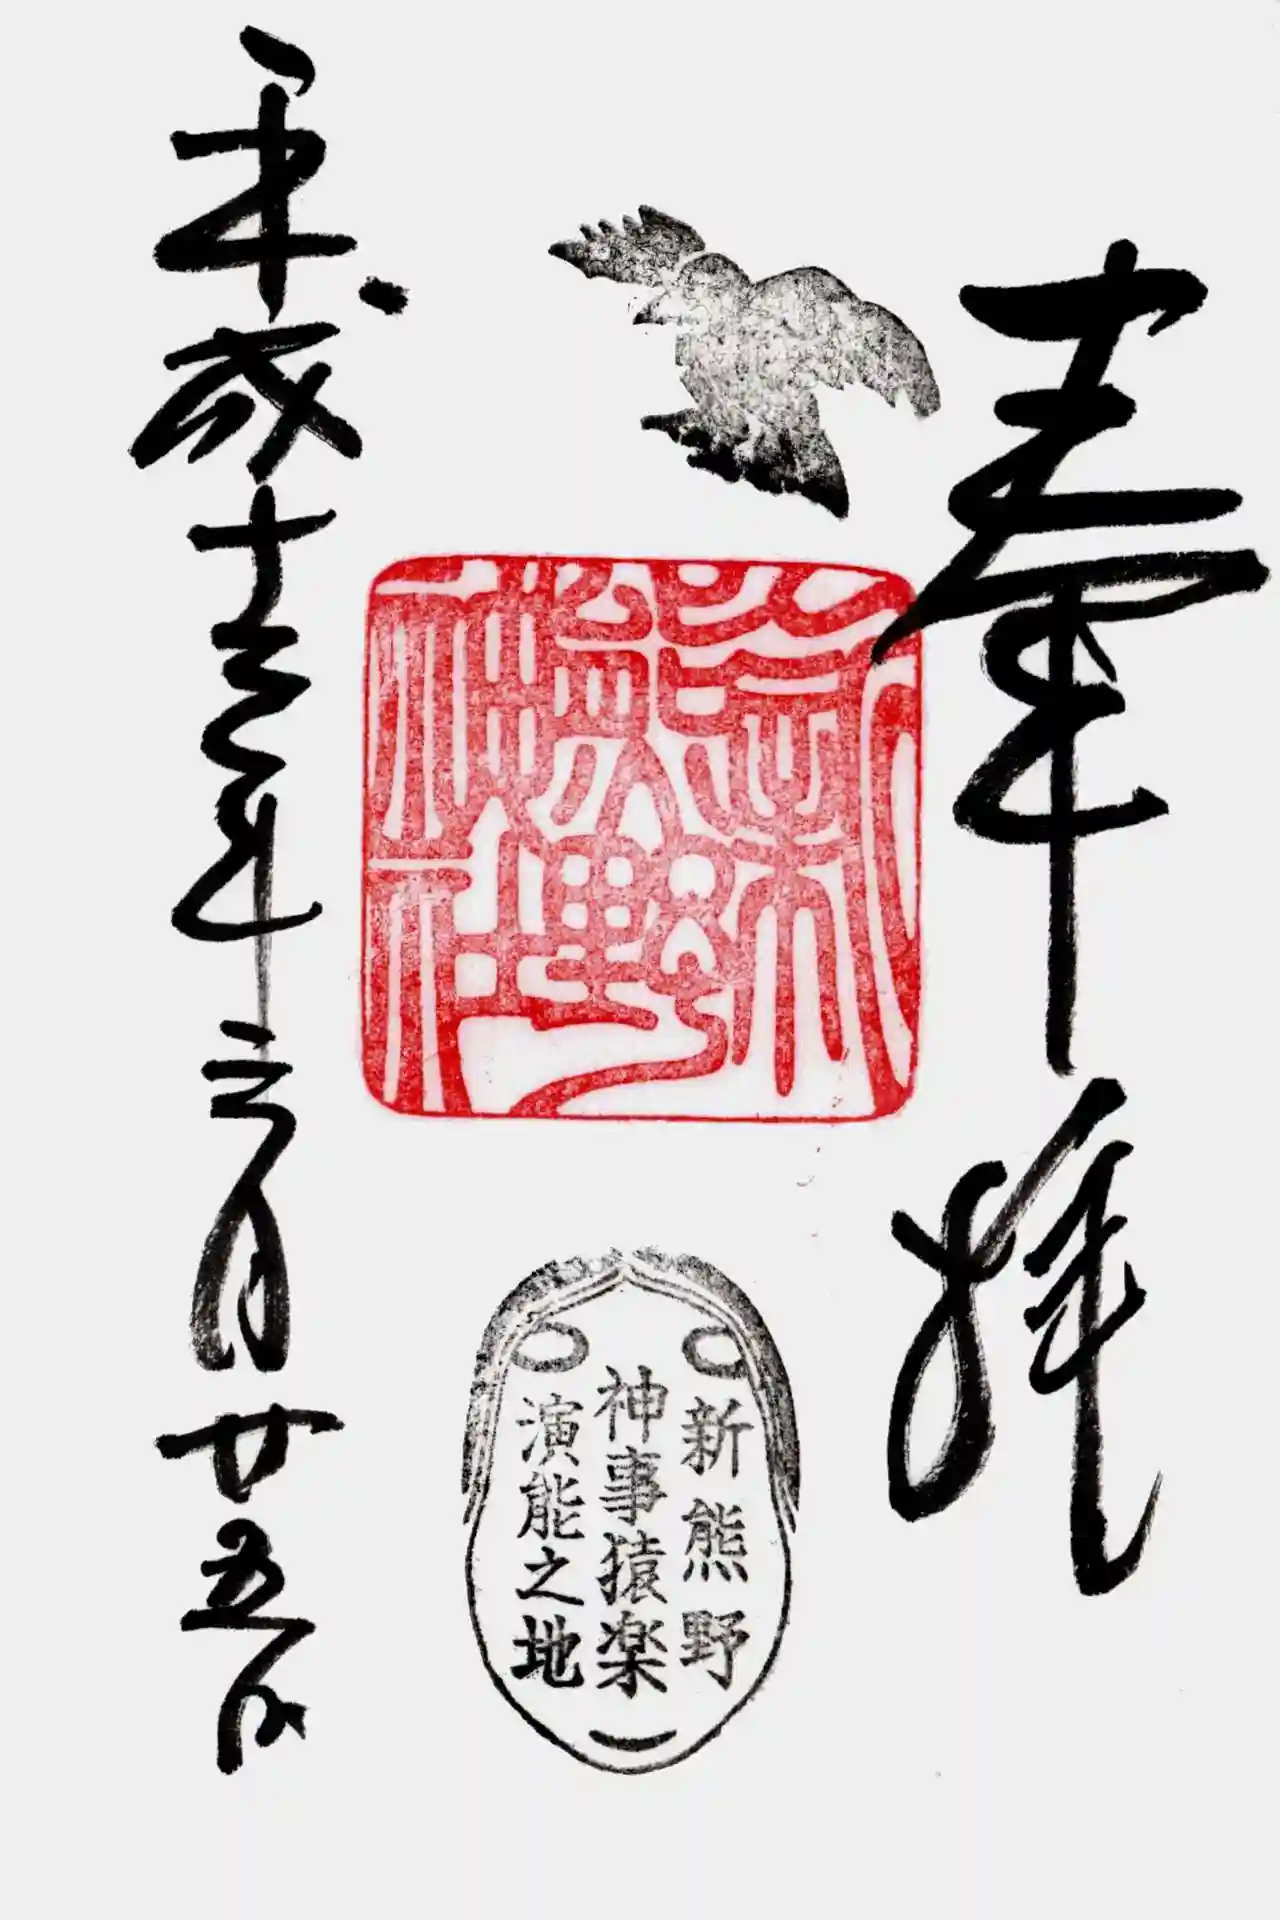 奉拝
新熊野神社
新熊野
神事猿楽
演能之地
平成十三年三月廿五日